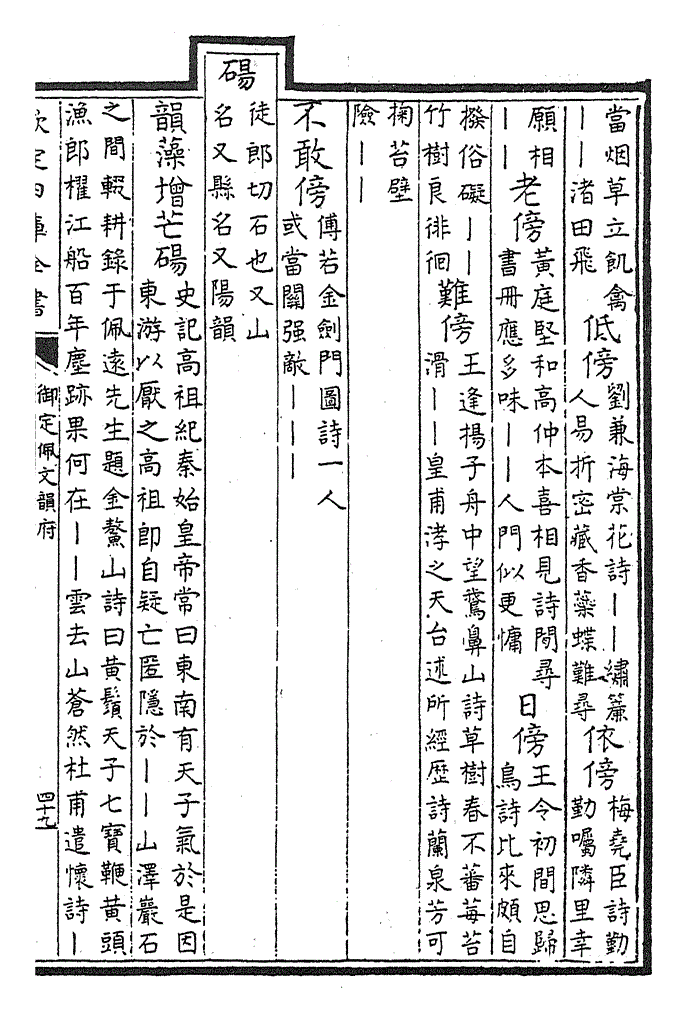 當烟草立飢禽
——渚田飛
低傍
劉兼海棠花詩——繡簾
人易折密藏香蘂蝶難尋
依傍
梅堯臣詩勤
勤囑隣里幸
願相
——
老傍
黃庭堅和高仲本喜相見詩間尋
書冊應多味——人門似更慵
日傍
王令初間思歸
鳥詩比來頗自
撥俗礙——
竹樹良徘徊
難傍
王逢揚子舟中望鵞鼻山詩草樹春不蕃莓苔
滑——皇甫涍之天台述所經歷詩蘭泉芳可
掬苔壁
險——
不敢傍
傅若金劍門圖詩一人
或當關强敵———
碭
徒郎切石也又山
名又縣名又陽韻
韻藻增芒碭
史記高祖紀秦始皇帝常曰東南有天子氣於是因
東游以厭之高祖即自疑亡匿隱於——山澤巖石
之間輟耕錄于佩遠先生題金鰲山詩曰黄鬚天子七寶鞭黄頭
漁郎櫂江船百年塵跡果何在——雲去山蒼然杜甫遣懷詩—
欽定四庫全書
御定佩文韻府
四十九